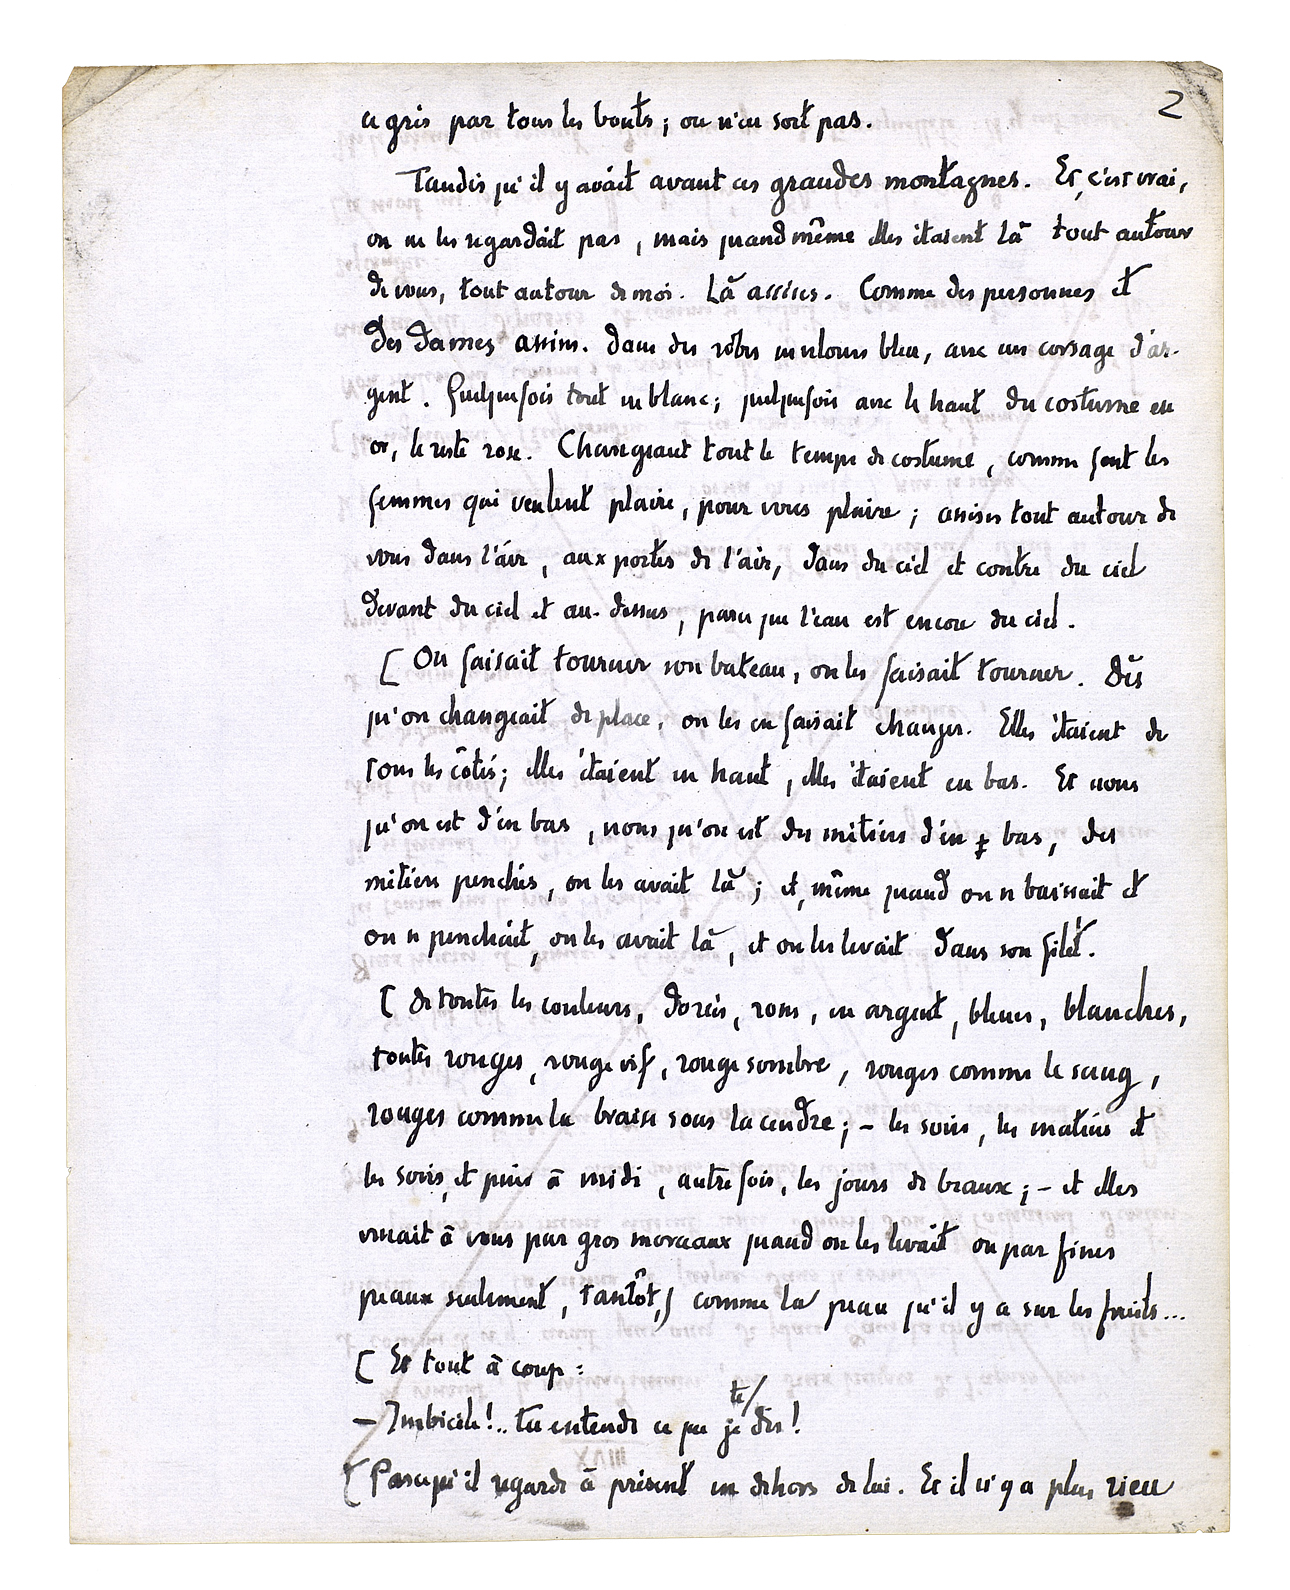 2
ce gris par tous les bouts ; on n'en sort pas.
Tandis qu'il y avait avant ces grandes montagnes. Et, c'est vrai,
on ne les regardait pas, mais quand même elles étaient là tout autour
de vous, tout autour de moi. Là assises. Comme des personnes et
des dames assises. Dans des robes en velours bleu, avec un corsage d'ar-
gent. Quelquefois tout en blanc ; quelquefois avec le haut du costume en
or, le reste rose. Changeant tout le temps de costume, comme font les
femmes qui veulent plaire, pour vous plaire ; assises tout autour de
vous dans l'air, aux portes de l'air, dans du ciel et contre du ciel
devant du ciel et au-dessus, parce que l'eau est encore du ciel.
[ On faisait tourner son bateau, on les faisait tourner. Dès
qu'on changeait de place, on les en faisait changer. Elles étaient de
tous les côtés ; elles étaient en haut, elles étaient en bas. Et nous
qu'on est d'en bas, nous qu'on est des métiers d'en bas, des
métiers penchés, on les avait là ; et, même quand on se baissait et
on se penchait, on les avait là, et on les levait dans son filet.
[ de toutes les couleurs, dorées, roses, en argent, bleues, blanches,
toutes rouges, rouge vif, rouge sombre, rouges comme le sang,
rouges comme la braise sous la cendre ; – les soirs, les matins et
les soirs, et puis à midi, autrefois, les jours de beaux ; – et elles
venait à vous par gros morceaux quand on les levait ou par fines
peaux seulement, tantôt,) comme la peau qu'il y a sur les fruits...
[ Et tout à coup :
te/
– Imbécile !.. tu entends ce que je dis !
[ Parce qu'il regarde à présent en dehors de lui. Et il n'y a plus rien